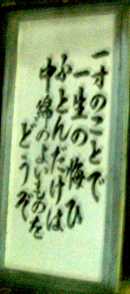 一才のことで
一生の悔ひ
ふとんだけは
中綿のよいものを
どうぞ